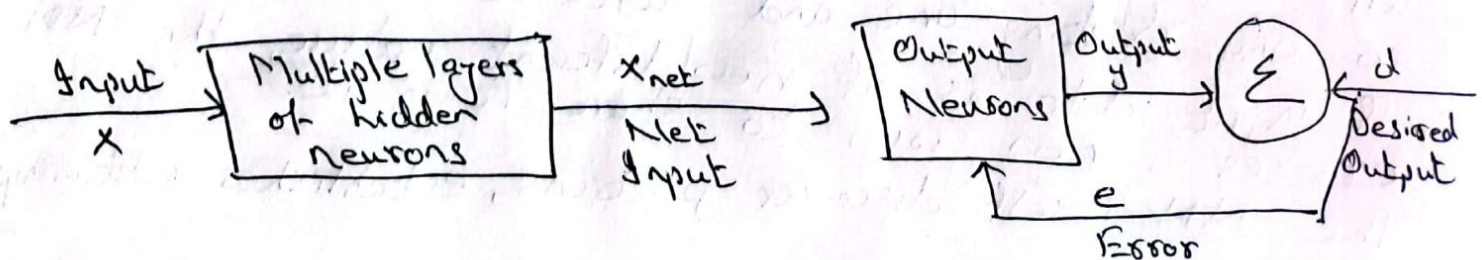 Input
X
Multiple layers
of hidden
neurons
Xnet
Net
Input
Output
Neurons
Output
y
Σ
d
Desired
Output
e
Error